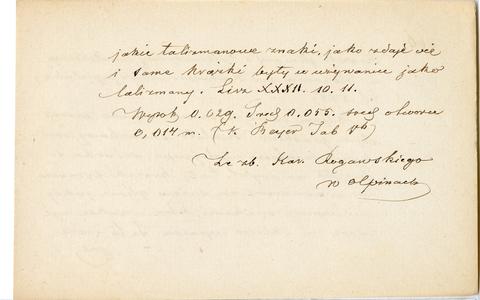 jakie talizmanowe znaki, jako zdaje się
i same krążki były w używanie jako
talizmany. Liv. XXXIV. 10. 11.
Wysok 0.029. Śred 0.055. śred otworu
0,014 m. (K. Beyer Tab Vb)
Ze zb. Kar. Rogawskiego
w Olpinach